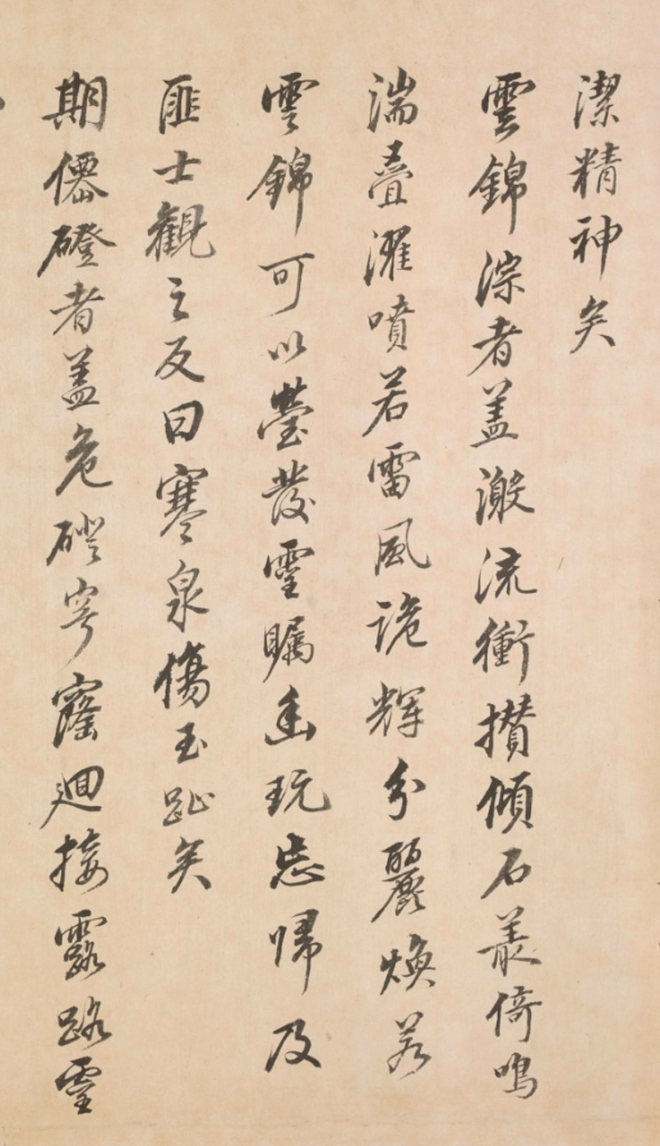 潔精神矣
雲錦淙者蓋激流衝攢傾石叢倚鳴
湍疊濯噴若雷風詭輝分麗煥若
雲錦可以瑩發靈矚幽玩忘歸及
匪士觀之反曰寒泉傷玉趾矣
期僊磴者蓋危磴穹窿迴接露路靈